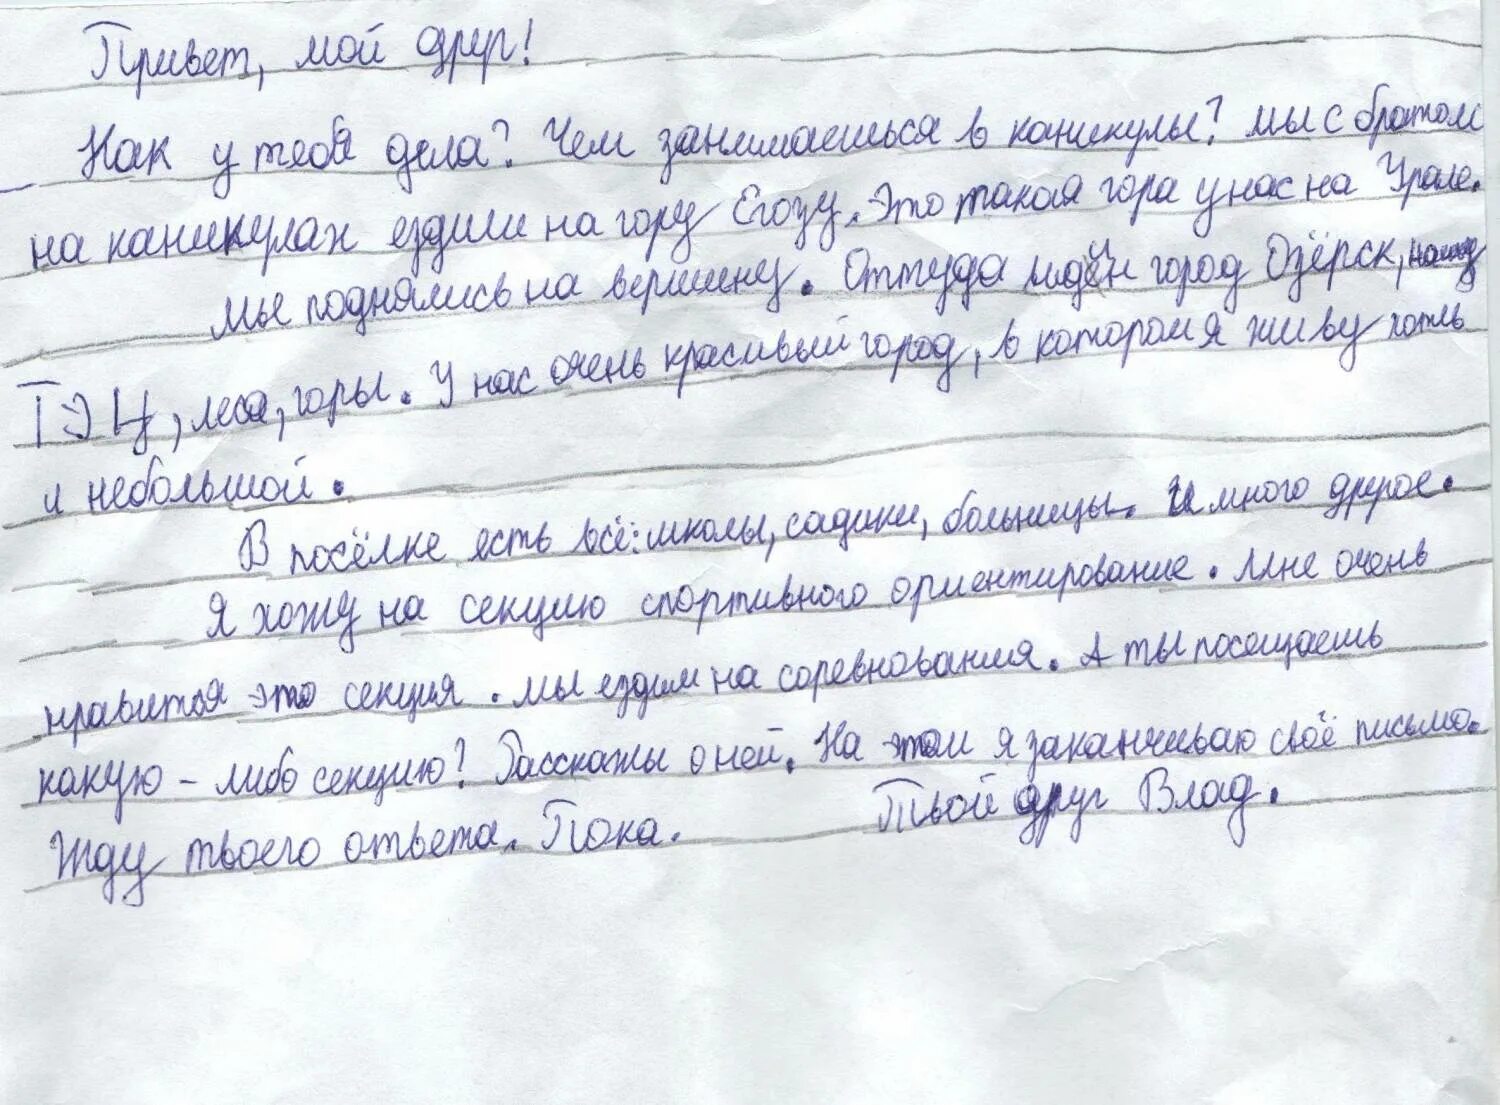 Привет, мой друг!
Как у тебя дела? Чем занимаешься в каникулы? Мы с братом
на каникулах ездили на гору Егозу. Это такая гора у нас на Урале.
Мы поднялись на вершину. Оттуда виден город Озёрск, нашу
ТЭЦ, леса, горы. У нас очень красивый город, в котором я живу хоть
и небольшой.
В посёлке есть всё: школы, садики, больницы. И много другое.
Я хожу на секцию спортивного ориентирование. Мне очень
нравится это секция. Мы ездим на соревнования. А ты посещаешь
какую-либо секцию? Расскажы о ней. На этом я заканчиваю своё письмо.
Жду твоего ответа. Пока. Твой друг Влад.